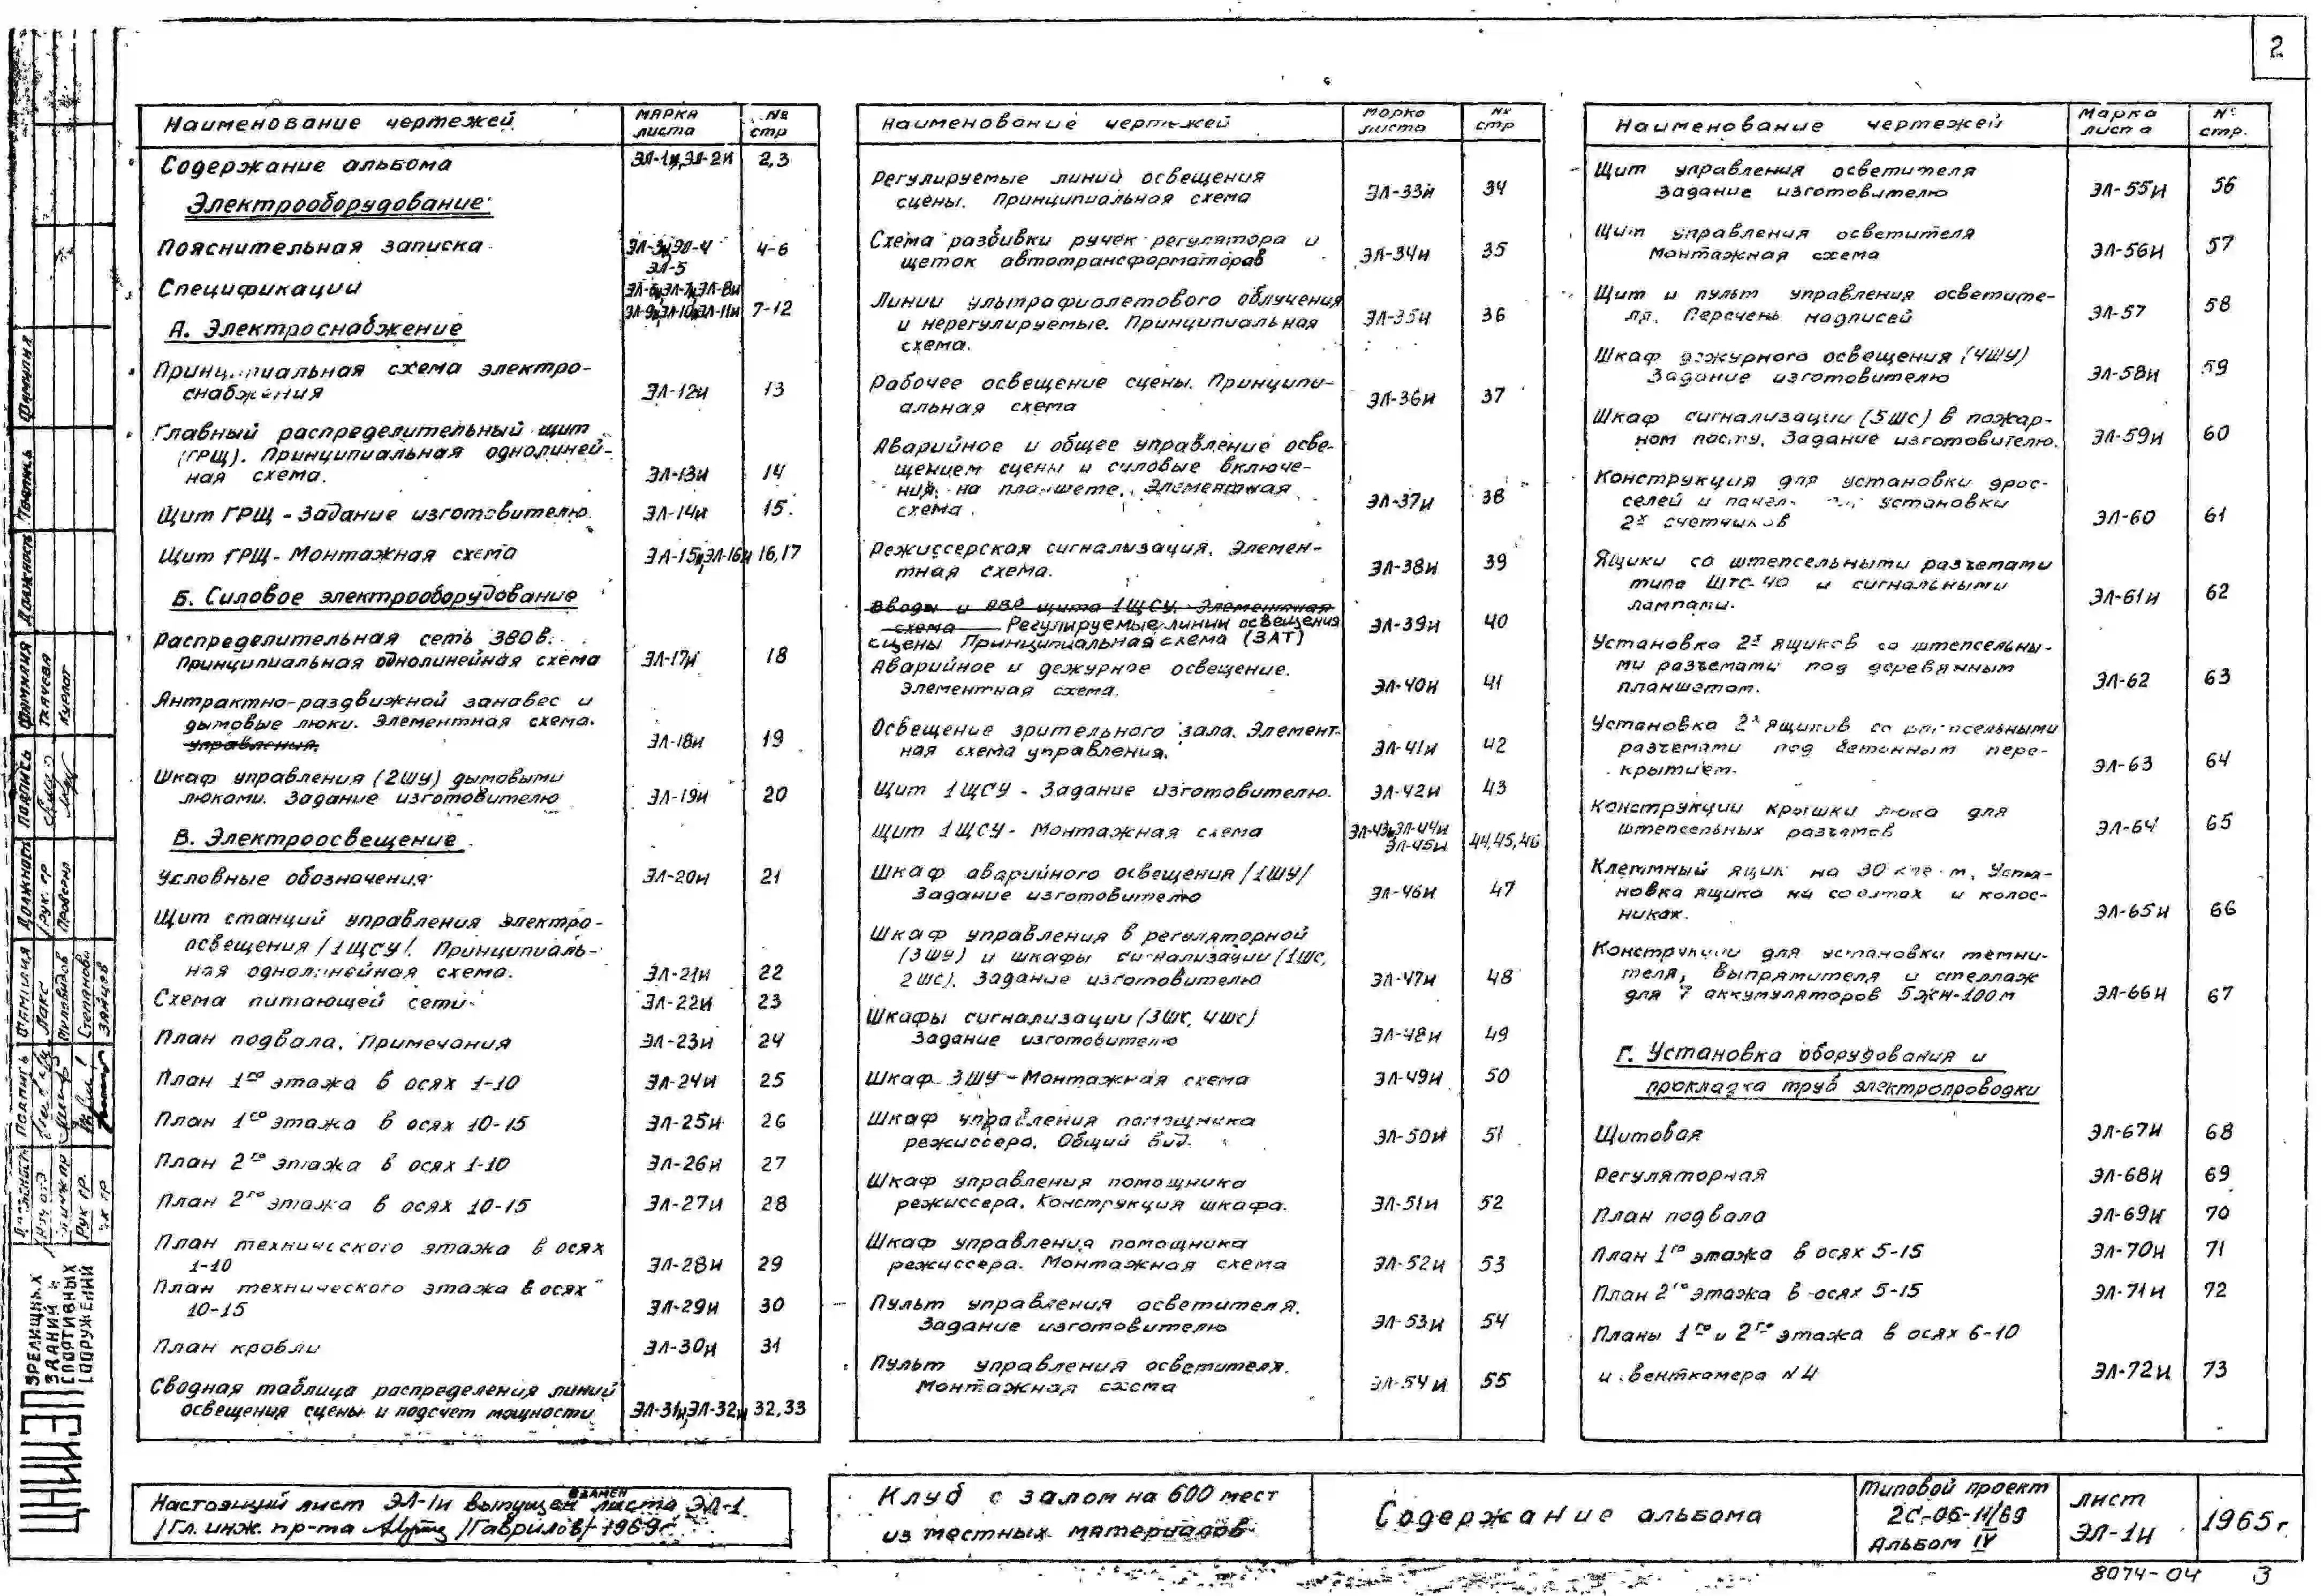 2
Наименование чертежей
Марка листа
№ стр
Содержание альбома ЭЛ-1и, ЭЛ-2и 2,3
Электрооборудование:
Пояснительная записка ЭЛ-3и, ЭЛ-4 4-6
ЭЛ-5
Спецификации ЭЛ-6и, ЭЛ-7и, ЭЛ-8и
ЭЛ-9и, ЭЛ-10и, ЭЛ-11и 7-12
А. Электроснабжение
Принципиальная схема электро-
снабжения ЭЛ-12и 13
Главный распределительный щит
(ГРЩ). Принципиальная однолиней-
ная схема. ЭЛ-13и 14
Щит ГРЩ - Задание изготовителю. ЭЛ-14и 15.
Щит ГРЩ - Монтажная схема ЭЛ-15и, ЭЛ-16и 16,17
Б. Силовое электрооборудование
Распределительная сеть 380в.
Принципиальная однолинейная схема ЭЛ-17и 18
Антрактно-раздвижной занавес и
дымовые люки. Элементная схема.
управления. ЭЛ-18и 19
Шкаф управления (2ШУ) дымовыми
люками. Задание изготовителю ЭЛ-19и 20
В. Электроосвещение.
Условные обозначения ЭЛ-20и 21
Щит станций управления электро-
освещения /1ЩСУ/. Принципиаль-
ная однолинейная схема. ЭЛ-21и 22
Схема питающей сети ЭЛ-22и 23
План подвала. Примечания ЭЛ-23и 24
План 1го этажа в осях 1-10 ЭЛ-24и 25
План 1го этажа в осях 10-15 ЭЛ-25и 26
План 2го этажа в осях 1-10 ЭЛ-26и 27
План 2го этажа в осях 10-15 ЭЛ-27и 28
План технического этажа в осях
1-10 ЭЛ-28и 29
План технического этажа в осях
10-15 ЭЛ-29и 30
План кровли ЭЛ-30и 31
Сводная таблица распределения линий
освещения сцены и подсчет мощности ЭЛ-31и, ЭЛ-32и 32,33
Наименование чертежей
Марка листа
№ стр
Регулируемые линий освещения
сцены. Принципиальная схема ЭЛ-33и 34
Схема разбивки ручек регулятора и
щеток автотрансформаторов ЭЛ-34и 35
Линии ультрафиолетового облучения
и нерегулируемые. Принципиальная
схема. ЭЛ-35и 36
Рабочее освещение сцены. Принципи-
альная схема ЭЛ-36и 37
Аварийное и общее управление осве-
щением сцены и силовые включе-
ния на планшете. Элементная
схема. ЭЛ-37и 38
Режиссерская сигнализация. Элемен-
тная схема. ЭЛ-38и 39
Вводы и АВР щита 1ЩСУ. Элементная
схема Регулируемые линии освещения ЭЛ-39и 40
сцены Принципиальная схема (ЗАТ)
Аварийное и дежурное освещение.
Элементная схема. ЭЛ-40и 41
Освещение зрительного зала. Элемент-
ная схема управления. ЭЛ-41и 42
Щит 1ЩСУ - Задание изготовителю. ЭЛ-42и 43
Щит 1ЩСУ - Монтажная схема ЭЛ-43и, ЭЛ-44и
ЭЛ-45и 44,45,46
Шкаф аварийного освещения /1ШУ/
Задание изготовителю ЭЛ-46и 47
Шкаф управления в регуляторной
(3ШУ) и шкафы сигнализации (1ШС,
2ШС). Задание изготовителю ЭЛ-47и 48
Шкафы сигнализации (3ШС, 4ШС)
Задание изготовителю ЭЛ-48и 49
Шкаф 3ШУ - Монтажная схема ЭЛ-49и 50
Шкаф управления помощника
режиссера. Общий вид. ЭЛ-50и 51
Шкаф управления помощника
режиссера. Конструкция шкафа. ЭЛ-51и 52
Шкаф управления помощника
режиссера. Монтажная схема ЭЛ-52и 53
Пульт управления осветителя.
Задание изготовителю ЭЛ-53и 54
Пульт управления осветителя.
Монтажная схема ЭЛ-54и 55
Наименование чертежей
Марка листа
№ стр.
Щит управления осветителя
Задание изготовителю ЭЛ-55и 56
Щит управления осветителя
Монтажная схема ЭЛ-56и 57
Щит и пульт управления осветите-
ля. Перечень надписей ЭЛ-57 58
Шкаф дежурного освещения (4ШУ)
Задание изготовителю ЭЛ-58и 59
Шкаф сигнализации (5ШС) в пожар-
ном посту. Задание изготовителю. ЭЛ-59и 60
Конструкция для установки дрос-
селей и установки
2х счетчиков ЭЛ-60 61
Ящики со штепсельными разъемами
типа ШТС-40 и сигнальными
лампами. ЭЛ-61и 62
Установка 2х ящиков со штепсельны-
ми разъемами под деревянным
планшетом. ЭЛ-62 63
Установка 2х ящиков со штепсельными
разъемами под бетонным пере-
крытием. ЭЛ-63 64
Конструкции крышки люка для
штепсельных разъемов ЭЛ-64 65
Клеммный ящик на 30 клемм. Уста-
новка ящика на софитах и колос-
никах. ЭЛ-65и 66
Конструкции для установки темни-
теля, выпрямителя и стеллаж
для 7 аккумуляторов 5ЖН-100м ЭЛ-66и 67
Г. Установка оборудования и
прокладка труб электропроводки
Щитовая ЭЛ-67и 68
Регуляторная ЭЛ-68и 69
План подвала ЭЛ-69и 70
План 1го этажа в осях 5-15 ЭЛ-70и 71
План 2го этажа в осях 5-15 ЭЛ-71и 72
Планы 1го и 2го этажа в осях 6-10
и венткамера №4 ЭЛ-72и 73
Настоящий лист ЭЛ-1и выпущен взамен листа ЭЛ-1
/Гл. инж. пр-та /Гаврилов/ 1969г.
Клуб с залом на 600 мест
из местных материалов
Содержание альбома
Типовой проект
2С-06-11/69
Альбом IV
Лист
ЭЛ-1и
1965г.
8074-04 3
ЦНИИЭП
зрелищных
зданий и
спортивных
сооружений